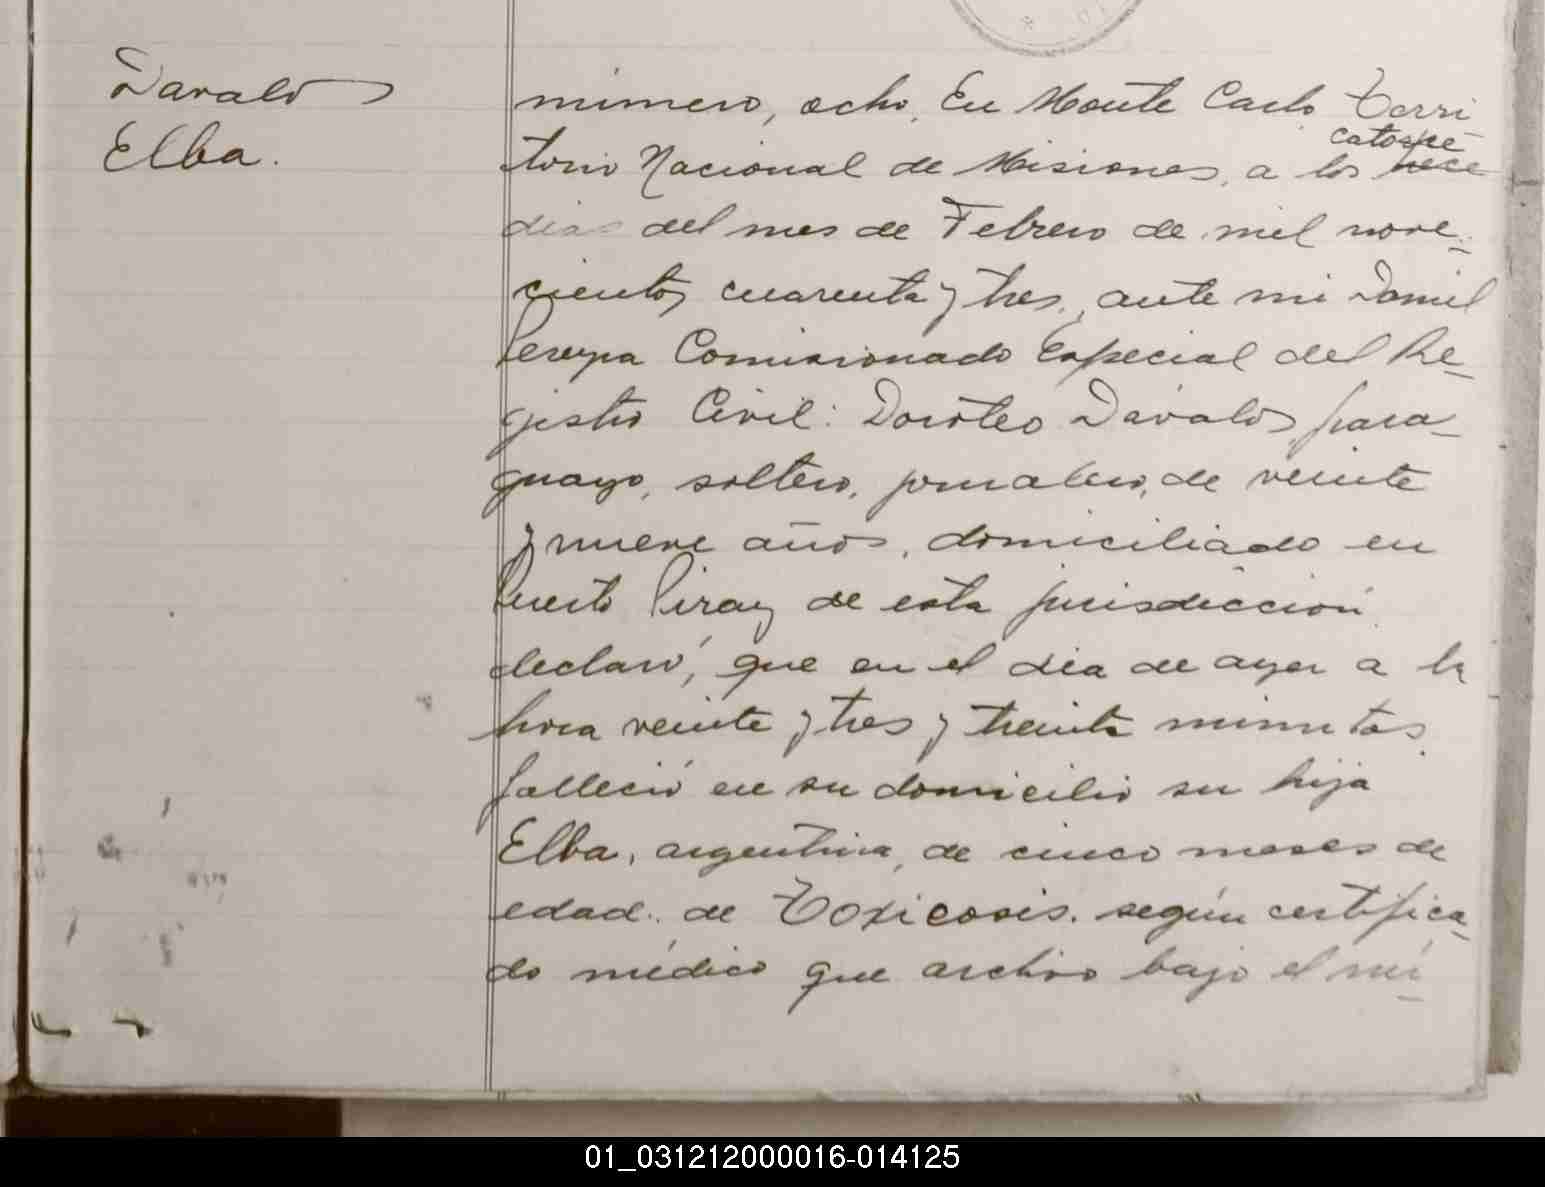 Davalos
Elba.
número, ocho. En Monte Carlo Terri
catorce
torio Nacional de Misiones, a los trece
dias del mes de Febrero de mil nove-
cientos cuarenta y tres, ante mi Daniel
Pereyra Comisionado Especial del Re-
gistro Civil: Doroteo Dávalos, para-
guayo, soltero, jornalero, de veinte
y nueve años, domiciliado en
Puerto Piray de esta jurisdicción
declaró, que en el dia de ayer a la
hora veinte y tres y treinta minutos
falleció en su domicilio su hija
Elba, argentina, de cinco meses de
edad. de Toxicosis. según certifica-
do médico que archivo bajo el nú-
01_031212000016-014125